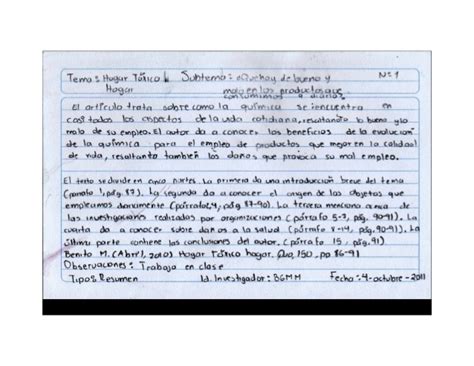 Tema: Hogar Tóxico Subtema: ¿Que hay de bueno y Nº 1
Hogar malo en los productos que
consumimos a diario?
El artículo trata sobre como la química se encuentra en
casi todos los aspectos de la vida cotidiana, resaltando lo bueno y lo
malo de su empleo. El autor da a conocer los beneficios de la evolución
de la química para el empleo de productos que mejoren la calidad
de vida, resaltando también los daños que provoca su mal empleo.
El texto se divide en cinco partes. La primera da una introducción breve del tema
(párrafo 1, pág. 87). La segunda da a conocer el origen de los objetos que
empleamos diariamente (párrafo 2,4, pág. 87-90). La tercera menciona acerca de
las investigaciones realizadas por organizaciones (párrafo 5-7, pág. 90-91). La
cuarta da a conocer sobre daños a la salud (párrafo 8-14, pág. 90-91). La
última parte contiene las conclusiones del autor. (párrafo 15, pág. 91)
Benito M. (Abril, 2010) Hogar Tóxico hogar. Quo, 150, pp 86-91
Observaciones: Trabajo en clase
Tipo: Resumen Id. Investigador: BGMM Fecha: 4-octubre-2011